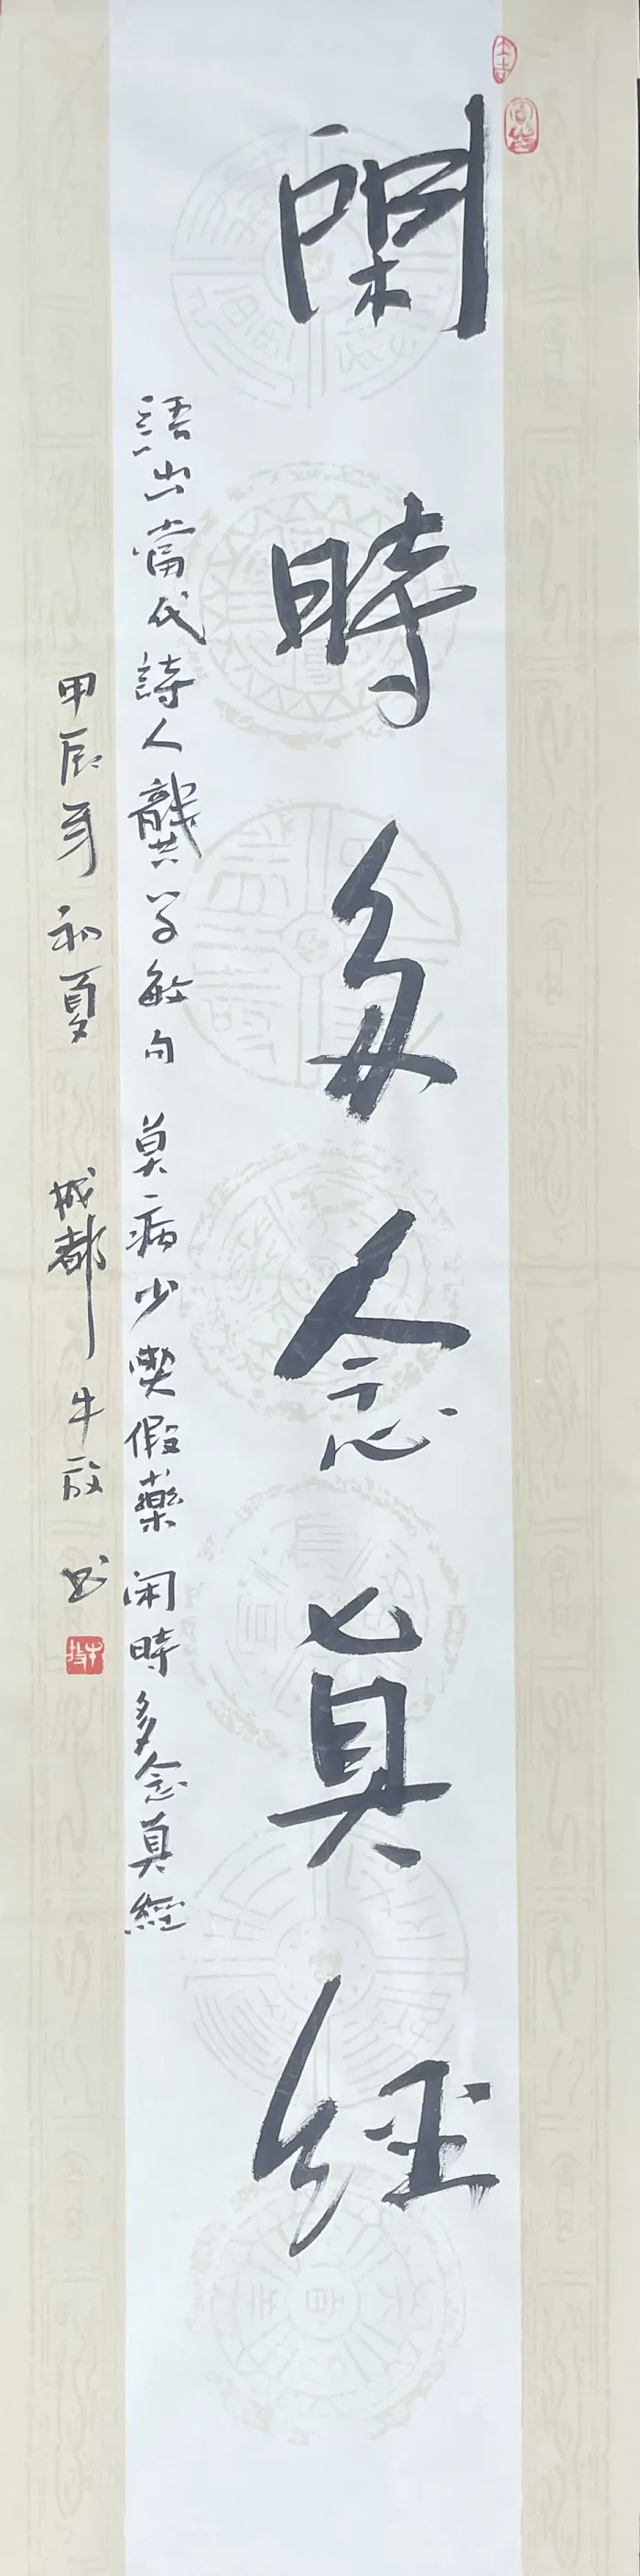 閑時多念真經
語出當代詩人龔学敏句 莫病少喫假藥 闲時多念真經
甲辰年初夏 成都 牛放 书
牛放